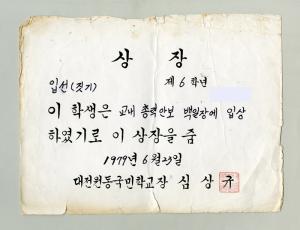 상 장
입선(짓기)
제 6 학년
이 학생은 교내 총력안보 백일장에 입상
하였기로 이 상장을 줌
1979년 6월 25일
대전원동국민학교장 심 상 규